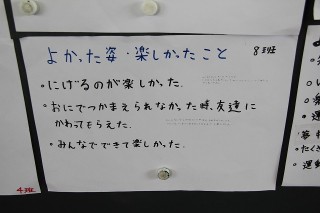 よかった姿・楽しかったこと
8班
。にげるのが楽しかった.
。おにでつかまえられなかった時、友達に
かわってもらえた.
。みんなでできて楽しかった.
4班